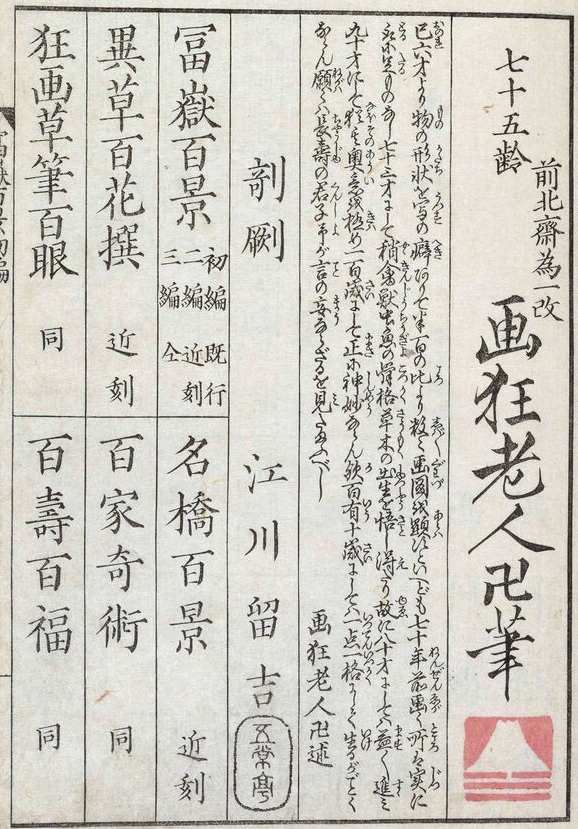 七十五齢
前北斎為一改
画狂老人卍筆
己六才より物の形状を写の癖ありて半百の比より数々画図を顕すといへども七十年前画く所は実に
取に足ものなし七十三才にして稍禽獣虫魚の骨格草木の出生を悟し得たり故に八十才にしては益々進み
九十才にして猶其奥意を極め一百歳にして正に神妙ならん歟百有十歳にしては一点一格にして生るがごとく
ならん願くは長寿の君子予が言の妄ならざるを見たまふべし
画狂老人卍述
剞劂 江川留吉 五常亭
冨嶽百景 初編 既行
二編 近刻
三編 仝
名橋百景 近刻
異草百花撰 近刻
百家奇術 同
狂画草筆百眼 同
百壽百福 同